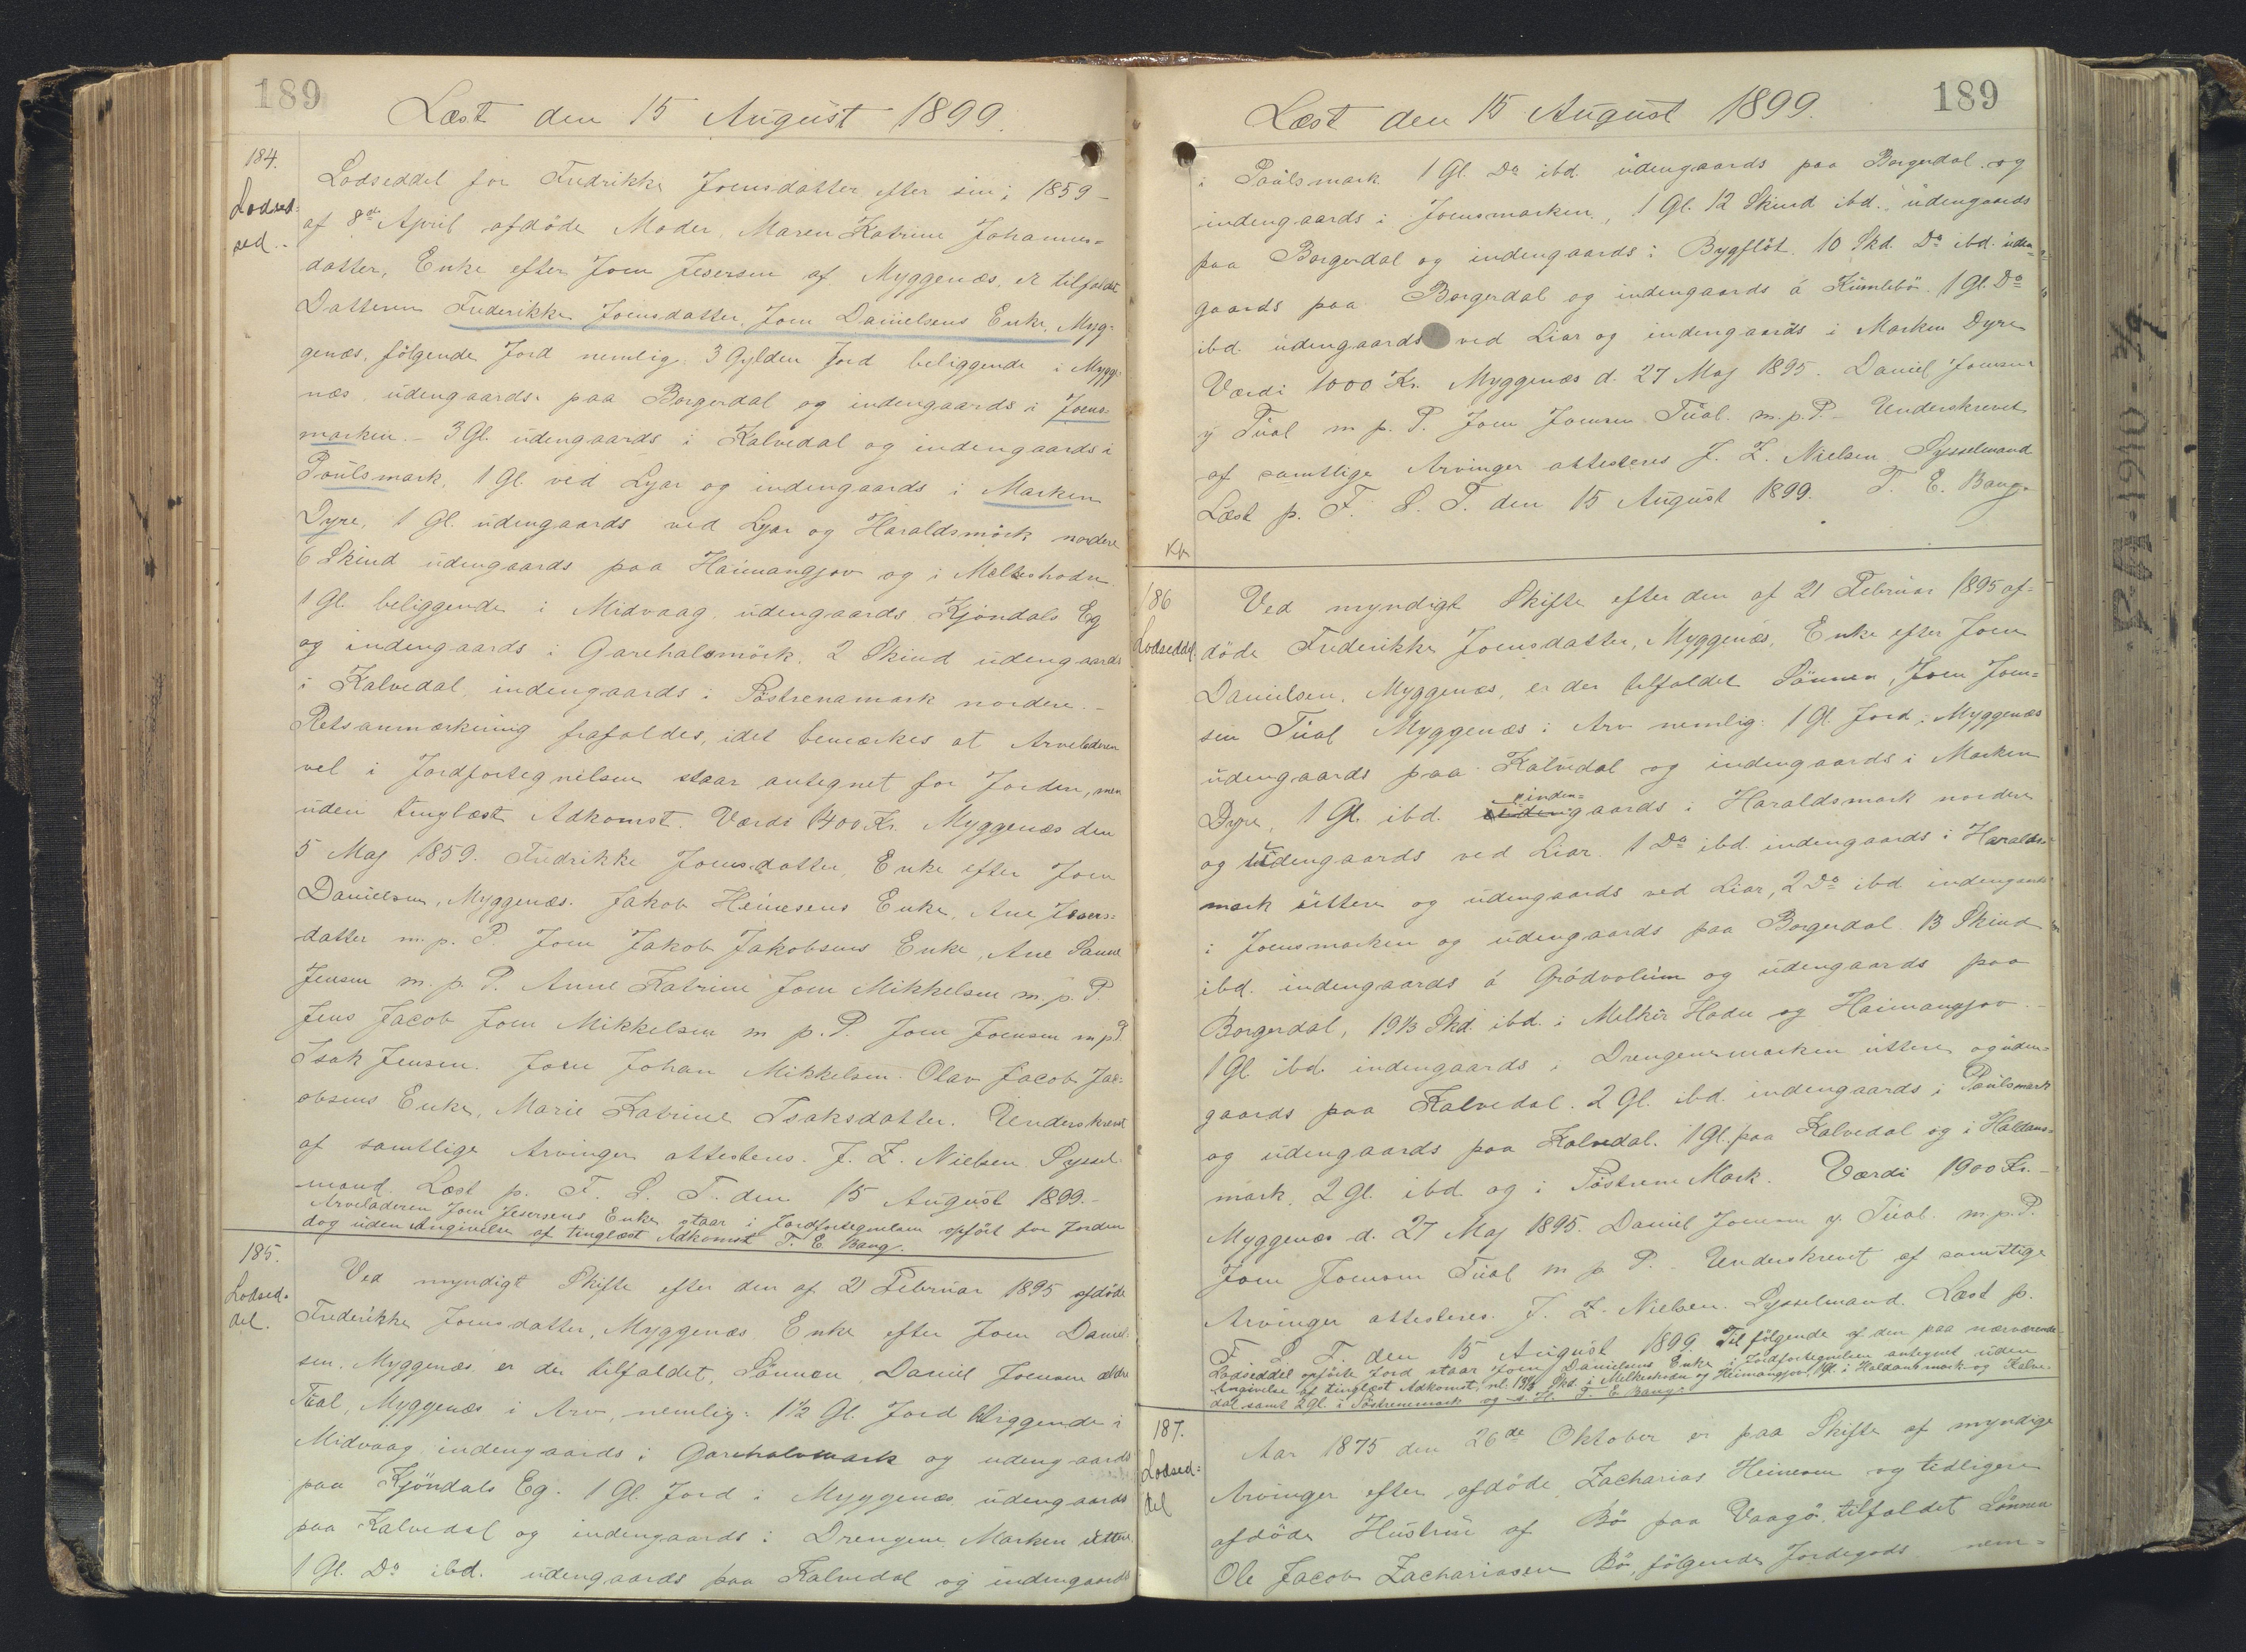 189
Læst den 15 August 1899.
184.
Lodsed=
ded.
Lodseddel for Fredrikke Joensdatter efter sin i 1859 –
af 8de April afdöde Moder, Maren Katrine Johannes=
datter, Enke efter Joen Jesersen af Myggenæs, er tilfaldet
Datteren Frederikke Joensdatter, Joen Danielsens Enke, Myg=
genæs, fölgende Jord nemlig 3 Gylden Jord beliggende i Mygge=
næs, udengaards paa Borgerdal og indengaards i Joens=
marken. – 3 Gl. udengaards i Kalvedal og indengaards i
Poulsmark, 1 Gl. ved Lyar og indengaards i Marken
Dyre, 1 Gl. udengaards ved Lyar og Haraldsmörk nordere
6 Skind udengaards paa Haimangjov og i Melkeshodn
1 Gl. beliggende i Midvaag udengaards Kjöndals Eg
og indengaards i Garehalsmörk. 2 Skind udengaards
i Kalvedal, indengaards i Söstrenamark nordere. –
Retsanmærkning frafaldes, idet bemærkes at Arveladeren
vel i Jordfortegnelsen staar antegnet for Jorden, men
uden tinglæst Adkomst. Værdi 1400 Kr. Myggenæs den
5 Maj 1859. Fredrikke Joensdatter, Enke efter Joen
Danielsen, Myggenæs. Jakob Heinesens Enke, Ane Jesers=
datter m. p. P. Joen Jakob Jakobsens Enke, Ane Sanne
Jensen m. p. P. Anne Katrine Joen Mikkelsen m. p. P.
Jens Jacob Joen Mikkelsen m p. P. Joen Joensen m p P.
Isak Jensen. Joen Johan Mikkelsen. Olav Jacob Jac=
obsens Enke, Marie Katrine Isaksdatter. Underskrevet
af samtlige Arvinger attesteres. J. Z. Nielsen Syssel=
mand. Læst p. F. S. T. den 15 August 1899. –
Arveladeren Joen Jesersens Enke staar i Jordfortegnelsen opfört for Jorden
dog uden Angivelse af tinglæst Adkomst T. E. Bang.
185.
Lodsed=
del.
Ved myndigt Skifte efter den af 21 Februar 1895 afdöde
Frederikke Joensdatter, Myggenæs Enke efter Joen Daniel=
sen, Myggenæs er der tilfaldet, Sönnen, Daniel Joensen ældre
Túal, Myggenæs i Arv, nemlig: 1½ Gl. Jord beliggende i
Midvaag indengaards i Garehalsmark og udengaards
paa Kjöndals Eg. 1 Gl. Jord i Myggenæs udengaards
paa Kalvedal og indengaards i Drengene Marken uttere
1 Gl. Do ibd. udengaards paa Kalvedal og indengaards
189
Læst den 15 August 1899.
i Paulsmark 1 Gl. Do ibd. udengaards paa Borgerdal og
indengaards i Joensmarken, 1 Gl. 12 Skind ibd. udengaards
paa Borgerdal og indengaards i Bygflöt. 10 Skd. Do ibd. uden=
gaards paa Borgerdal og indengaards á Kumlebö. 1 Gl. Do
ibd. udengaards ved Liar og indengaards i Marken Dyre
Værdi 1000 Kr. Myggenæs d. 27 Maj 1895. Daniel Joensen
y Túal m p. P. Joen Joensen Túal. m. p. P. – Underskrevet
af samtlige Arvinger attesteres J. Z. Nielsen Sysselmand
Læst p. F. S. T. den 15 August 1899. T. E. Bang.
186
Lodseddel
Ved myndigt Skifte efter den af 21 Februar 1895 af=
döde Frederikke Joensdatter, Myggenæs, Enke efter Joen
Danielsen, Myggenæs, er der tilfaldet Sönnen, Joen Joen=
sen Túal Myggenæs i Arv nemlig: 1 Gl. Jord i Myggenæs
udengaards paa Kalvedal og indengaards i Marken
Dyre, 1 Gl. ibd. inden=gaards i Haraldsmark nordere
og udengaards ved Liar. 1 Do ibd. indengaards i Haralds=
mark úttere og udengaards ved Liar, 2 Do ibd indengaards
i Joensmarken og udengaards paa Borgerdal 13 Skind
ibd. indengaards á Grödvolum og udengaards paa
Borgerdal, 19⅓ Skd. ibd. i Melker Hodn og Haimangjov. –
1 Gl. ibd. indengaards i Drengenemarken uttere og uden=
gaards paa Kalvedal. 2 Gl. ibd. indengaards i Paulsmark
og udengaards paa Kalvedal. 1 Gl. paa Kalvedal og i Haldans=
mark, 2 Gl. ibd. og i Söstrene Mark. Værdi 1900 Kr. –
Myggenæs d. 27 Maj 1895. Daniel Joensen y. Túal. m. p. P.
Joen Joensen Túal m p P. Underskrevet af samtlige
Arvinger attesteres. J. Z. Nielsen. Sysselmand. Læst p.
F. S. T. den 15 August 1899. Til fölgende af den paa nærværende
Lodseddel opförte Jord staar Joen Danielsens Enke i Jordfortegnelsen antegnet uden
Angivelse af tinglæst Adkomst, nl. 19⅓ Skd. i Melkeshodn og Heimangjov, 1 Gl. i Haldansmark og Kalve=
dal samt 2 Gl. i Söstrenemark T. E. Bang
187.
Lodsed=
del
Aar 1875 den 26de Oktober er paa Skifte af myndige
Arvinger efter afdöde Zacharias Heinesen og tidligere
afdöde Hustru af Bö paa Vaagö tilfaldet Sönnen
Ole Jacob Zachariasen Bö, fölgende Jordegods nem=